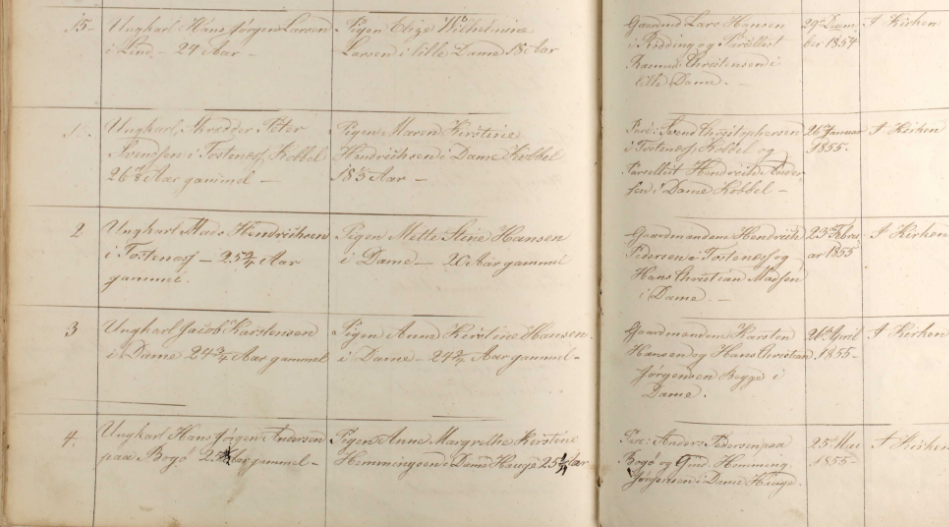 15. Ungkarl Hans Jørgen Larsen
i Lind - 24 Aar -
Pigen Elize Wilhelmine
Larsen i lille Dame 18 Aar
Gaardmd Lars Hansen
i Rødding og Parcellist
Rasmus Christensen i
lille Dame. -
29de Decem
ber 1854
I Kirken
Ungkarl, Skrædder Peter
Svendsen i Tostenæs, Kobbel
26 Aar gammel -
Pigen Maren Kirstine
Hendrichsen i Dame Kobbel
18 Aar -
Svend Christophersen
i Tostenæs Kobbel og
Parcellist Hendrich Ander
sen i Dame Kobbel -
26de Januar
1855.
I Kirken
2 Ungkarl Mads Hendrichsen
i Tostenæs - 25 Aar
gammel.
Pigen Mette Stine Hansen
i Dame - 20 Aar gammel
Gaardmændene Hendrich
Pedersen i Tostenæs og
Hans Christian Madsen
i Dame. -
23de Febru
ar 1855
I Kirken
3 Ungkarl Jacob Karstensen
i Dame 24 3/4 Aar gammel
Pigen Anne Kirstine Hansen
i Dame - 24 Aar gammel -
Gaardmændene Karsten
Hansen og Hans Christian
Jørgensen Begge i
Dame.
26de April
1855-
I Kirken
4. Ungkarl Hans Jørgen Andersen
paa Bogø Aar gammel -
Pigen Anne Margrethe Kirstine
Hemmingsen i Dame Hauge 25 Aar
Anders Pedersen paa
Bogø og Hemming
Jørgensen i Dame Hauge.
25 Mai
1855-
I Kirken